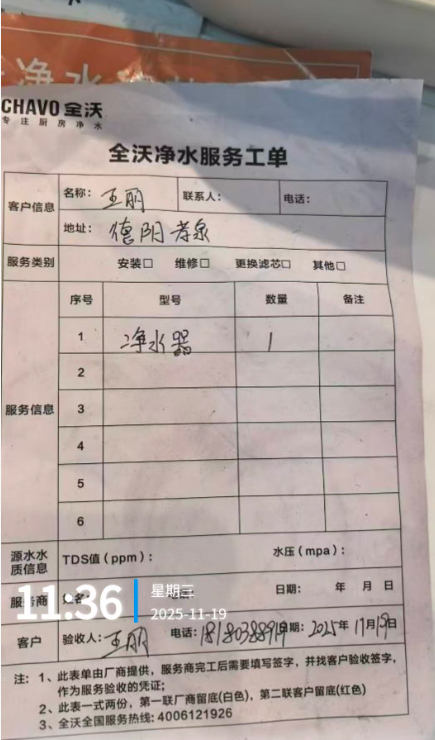 净水
CHAVO 全沃
专注厨房净水
全沃净水服务工单
客户信息 名称：王丽 联系人： 电话：
地址：德阳孝泉
服务类别 安装□ 维修□ 更换滤芯□ 其他□
服务信息 序号 型号 数量 备注
1 净水器 1
2
3
4
5
6
源水水质信息 TDS值（ppm）： 水压（mpa）：
服务商 日期： 年 月 日
11:36 星期三
2025-11-19
客户 验收人：王丽 电话：日期：2025年11月19日
注：1、此表单由厂商提供，服务商完工后需要填写签字，并找客户验收签字，
作为服务验收的凭证；
2、此表一式两份，第一联厂商留底(白色)，第二联客户留底(红色)
3、全沃全国服务热线：4006121926